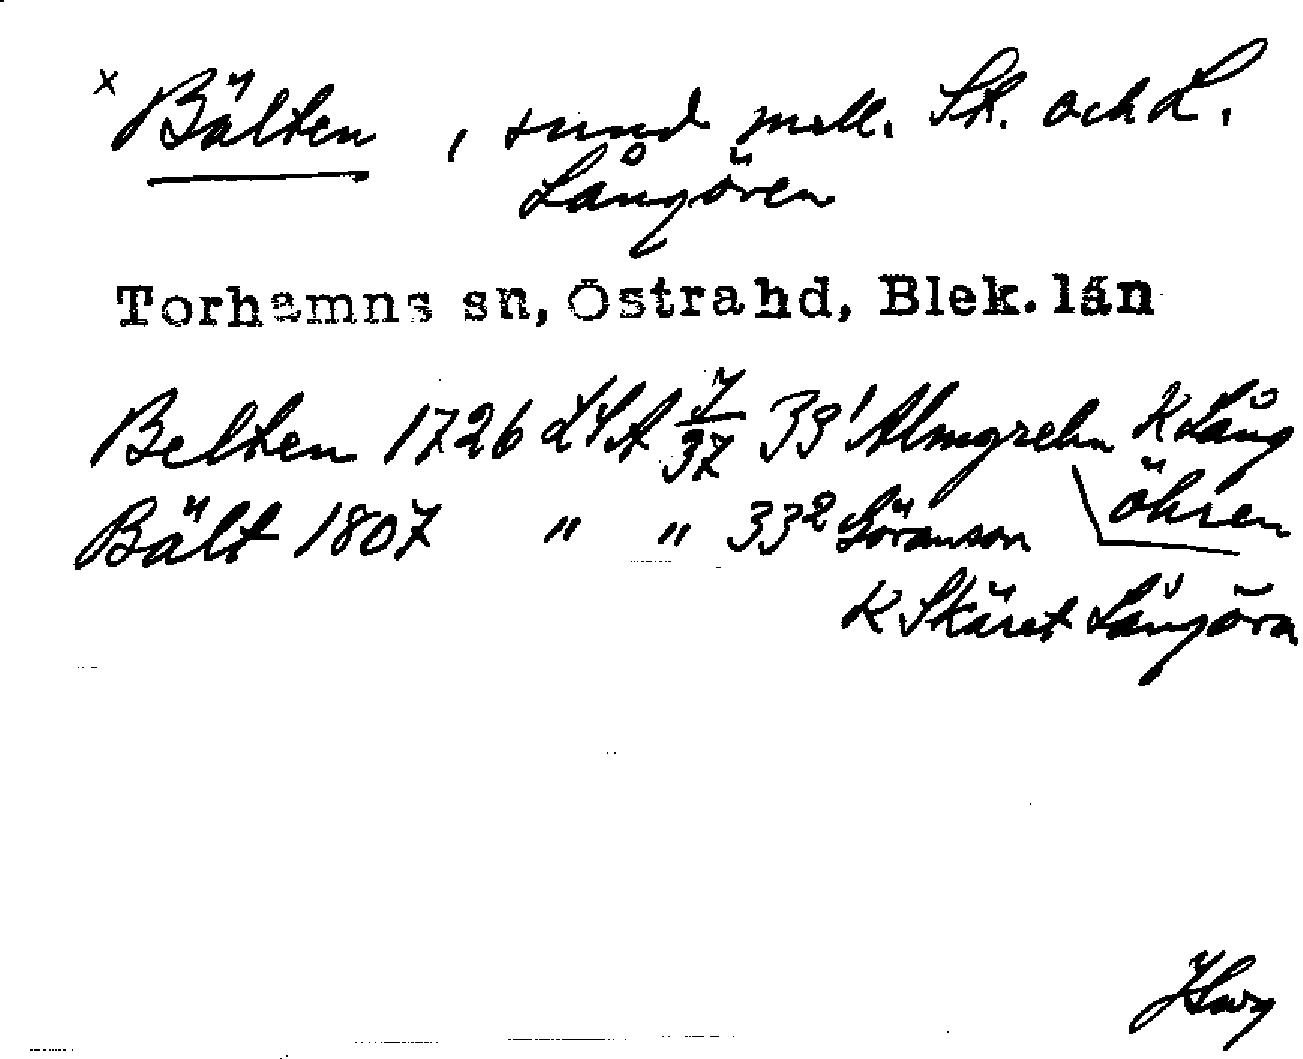 x Bälten, sund mell. St. och L.
Långören
Torhamns sn, Östra hd, Blek. län
Belten 1726 LSA 7/37 33¹ Almgrehn K Lång
öhren
Bält 1807 " " 33² Göranson
K Skäret Långörn